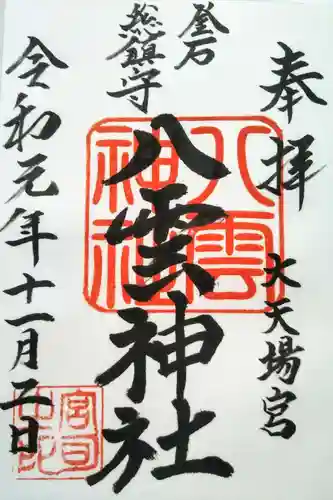 奉拝
大天場宮
釜石
総鎮守
八雲神社
八雲
神社
令和元年十一月二日